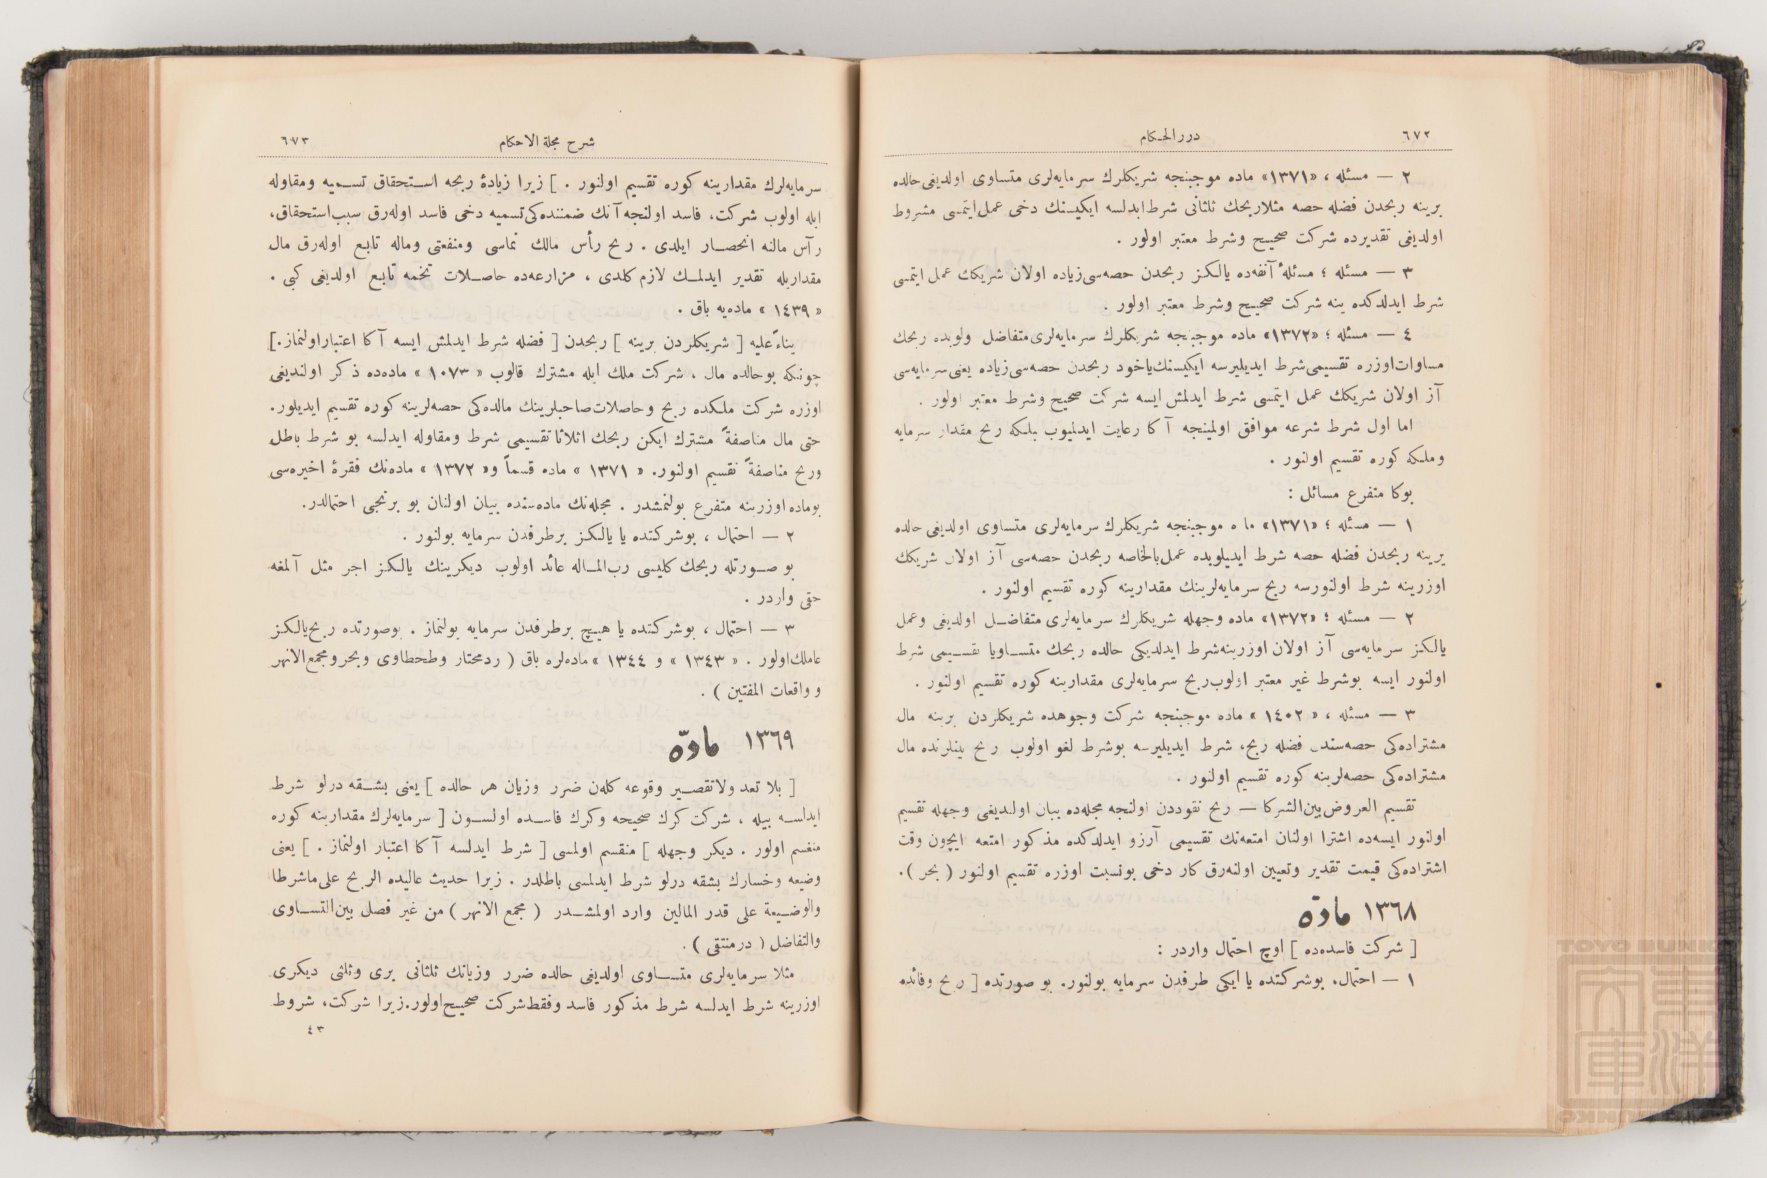 ٦٧٢
درر الحكام
٢ — مسئله ، «١٣٧١» ماده موجبنجه شريكلرك سرمايه‌لرى متساوى اولديغى حالده
برينه ربحدن فضله حصه مثلا ربحك ثلثانى شرط ايدلسه ايكيسنك دخى عمل ايتمسى مشروط
اولديغى تقديرده شركت صحيح وشرط معتبر اولور .
٣ — مسئله ؛ مسئلهٔ آنفه‌ده يالكز ربحدن حصه‌سى زياده اولان شريكك عمل ايتمسى
شرط ايدلدكده ينه شركت صحيح وشرط معتبر اولور .
٤ — مسئله ؛ «١٣٧٢» ماده موجبنجه شريكلرك سرمايه‌لرى متفاضل ولوبده ربحك
مساوات اوزره تقسيمى شرط ايديليرسه ايكيسنك ياخود ربحدن حصه‌سى زياده يعنى سرمايه‌سى
آز اولان شريكك عمل ايتمسى شرط ايدلمش ايسه شركت صحيح وشرط معتبر اولور .
اما اول شرط شرعه موافق اولمينجه آكا رعايت ايدلميوب بلكه ربح مقدار سرمايه
وملكه كوره تقسيم اولنور .
بوكا متفرع مسائل :
١ — مسئله ؛ «١٣٧١» ماده موجبنجه شريكلرك سرمايه‌لرى متساوى اولديغى حالده
برينه ربحدن فضله حصه شرط ايديلوبده عمل بالخاصه ربحدن حصه‌سى آز اولان شريكك
اوزرينه شرط اولنورسه ربح سرمايه‌لرينك مقدارينه كوره تقسيم اولنور .
٢ — مسئله ؛ «١٣٧٢» ماده وجهله شريكلرك سرمايه‌لرى متفاضل اولديغى وعمل
يالكز سرمايه‌سى آز اولان اوزرينه شرط ايدلديكى حالده ربحك متساويا تقسيمى شرط
اولنور ايسه بوشرط غير معتبر اولوب ربح سرمايه‌لرى مقدارينه كوره تقسيم اولنور .
٣ — مسئله ، « ١٤٠٢ » ماده موجبنجه شركت وجوهده شريكلردن برينه مال
مشتراده‌كى حصه‌سندن فضله ربح، شرط ايديليرسه بوشرط لغو اولوب ربح بينلرنده مال
مشتراده‌كى حصه‌لرينه كوره تقسيم اولنور .
تقسيم العروض بين الشركا — ربح نقوددن اولنجه مجله‌ده بيان اولنديغى وجهله تقسيم
اولنور ايسه‌ده اشترا اولنان امتعه‌نك تقسيمى آرزو ايدلدكده مذكور امتعه ايچون وقت
اشتراده‌كى قيمت تقدير وتعيين اولنه‌رق كار دخى بونسبت اوزره تقسيم اولنور ( بحر ).
١٣٦٨ مادّه
[ شركت فاسده‌ده ] اوچ احتمال واردر :
١ — احتمال، بوشركتده يا ايكى طرفدن سرمايه بولنور. بو صورتده [ ربح وفائده
شرح مجلة الاحكام
٦٧٣
سرمايه‌لرك مقدارينه كوره تقسيم اولنور . ] زيرا زيادهٔ ربحه استحقاق تسميه ومقاوله
ايله اولوب شركت، فاسد اولنجه آنك ضمننده‌كى تسميه دخى فاسد اوله‌رق سبب استحقاق،
رأس ماله انحصار ايلدى . ربح رأس مالك نماسى ومنفعتى وماله تابع اوله‌رق مال
مقداريله تقدير ايدلمك لازم كلدى ، مزارعه‌ده حاصلات تخمه تابع اولديغى كبى .
« ١٤٣٩ » ماده‌يه باق .
بناءً عليه [ شريكلردن برينه ] ربحدن [ فضله شرط ايدلمش ايسه آكا اعتبار اولنماز.]
چونكه بوحالده مال ، شركت ملك ايله مشترك قالوب « ١٠٧٣ » ماده‌ده ذكر اولنديغى
اوزره شركت ملكده ربح وحاصلات صاحبلرينك مالده‌كى حصه‌لرينه كوره تقسيم ايديلور.
حتى مال مناصفةً مشترك ايكن ربحك اثلاثا تقسيمى شرط ومقاوله ايدلسه بو شرط باطل
وربح مناصفةً تقسيم اولنور. « ١٣٧١ » ماده قسماً و« ١٣٧٢ » ماده‌نك فقرهٔ اخيره‌سى
بوماده اوزرينه متفرع بولنمشدر . مجله‌نك ماده‌سنده بيان اولنان بو برنجى احتمالدر.
٢ — احتمال ، بوشركتده يا يالكز برطرفدن سرمايه بولنور .
بو صورتله ربحك كليسى رب المــاله عائد اولوب ديكرينك يالكز اجر مثل آلمغه
حقى واردر .
٣ — احتمال ، بوشركتده يا هيچ برطرفدن سرمايه بولنماز . بوصورتده ربح يالكز
عاملك اولور . « ١٣٤٣ » و « ١٣٤٤ » ماده‌لره باق ( ردمحتار وطحطاوى وبحر ومجمع الانهر
و واقعات المفتين ) .
١٣٦٩ مادّه
[ بلا تعد ولاتقصير وقوعه كلن ضرر وزيان هر حالده ] يعنى بشقه درلو شرط
ايدلسه بيله ، شركت كرك صحيحه وكرك فاسده اولسون [ سرمايه‌لرك مقدارينه كوره
منقسم اولور . ديكر وجهله ] منقسم اولمسى [ شرط ايدلسه آكا اعتبار اولنماز . ] يعنى
وضيعه وخسارك بشقه درلو شرط ايدلمسى باطلدر . زيرا حديث عاليده الربح على ماشرطا
والوضيعة على قدر المالين وارد اولمشدر ( مجمع الانهر ) من غير فصل بين التساوى
والتفاضل ( درمنتقى ) .
مثلا سرمايه‌لرى متساوى اولديغى حالده ضرر وزيانك ثلثانى برى وثلثى ديكرى
اوزرينه شرط ايدلسه شرط مذكور فاسد وفقط شركت صحيح اولور. زيرا شركت، شروط
٤٣
TOYO BUNKO
東洋文庫